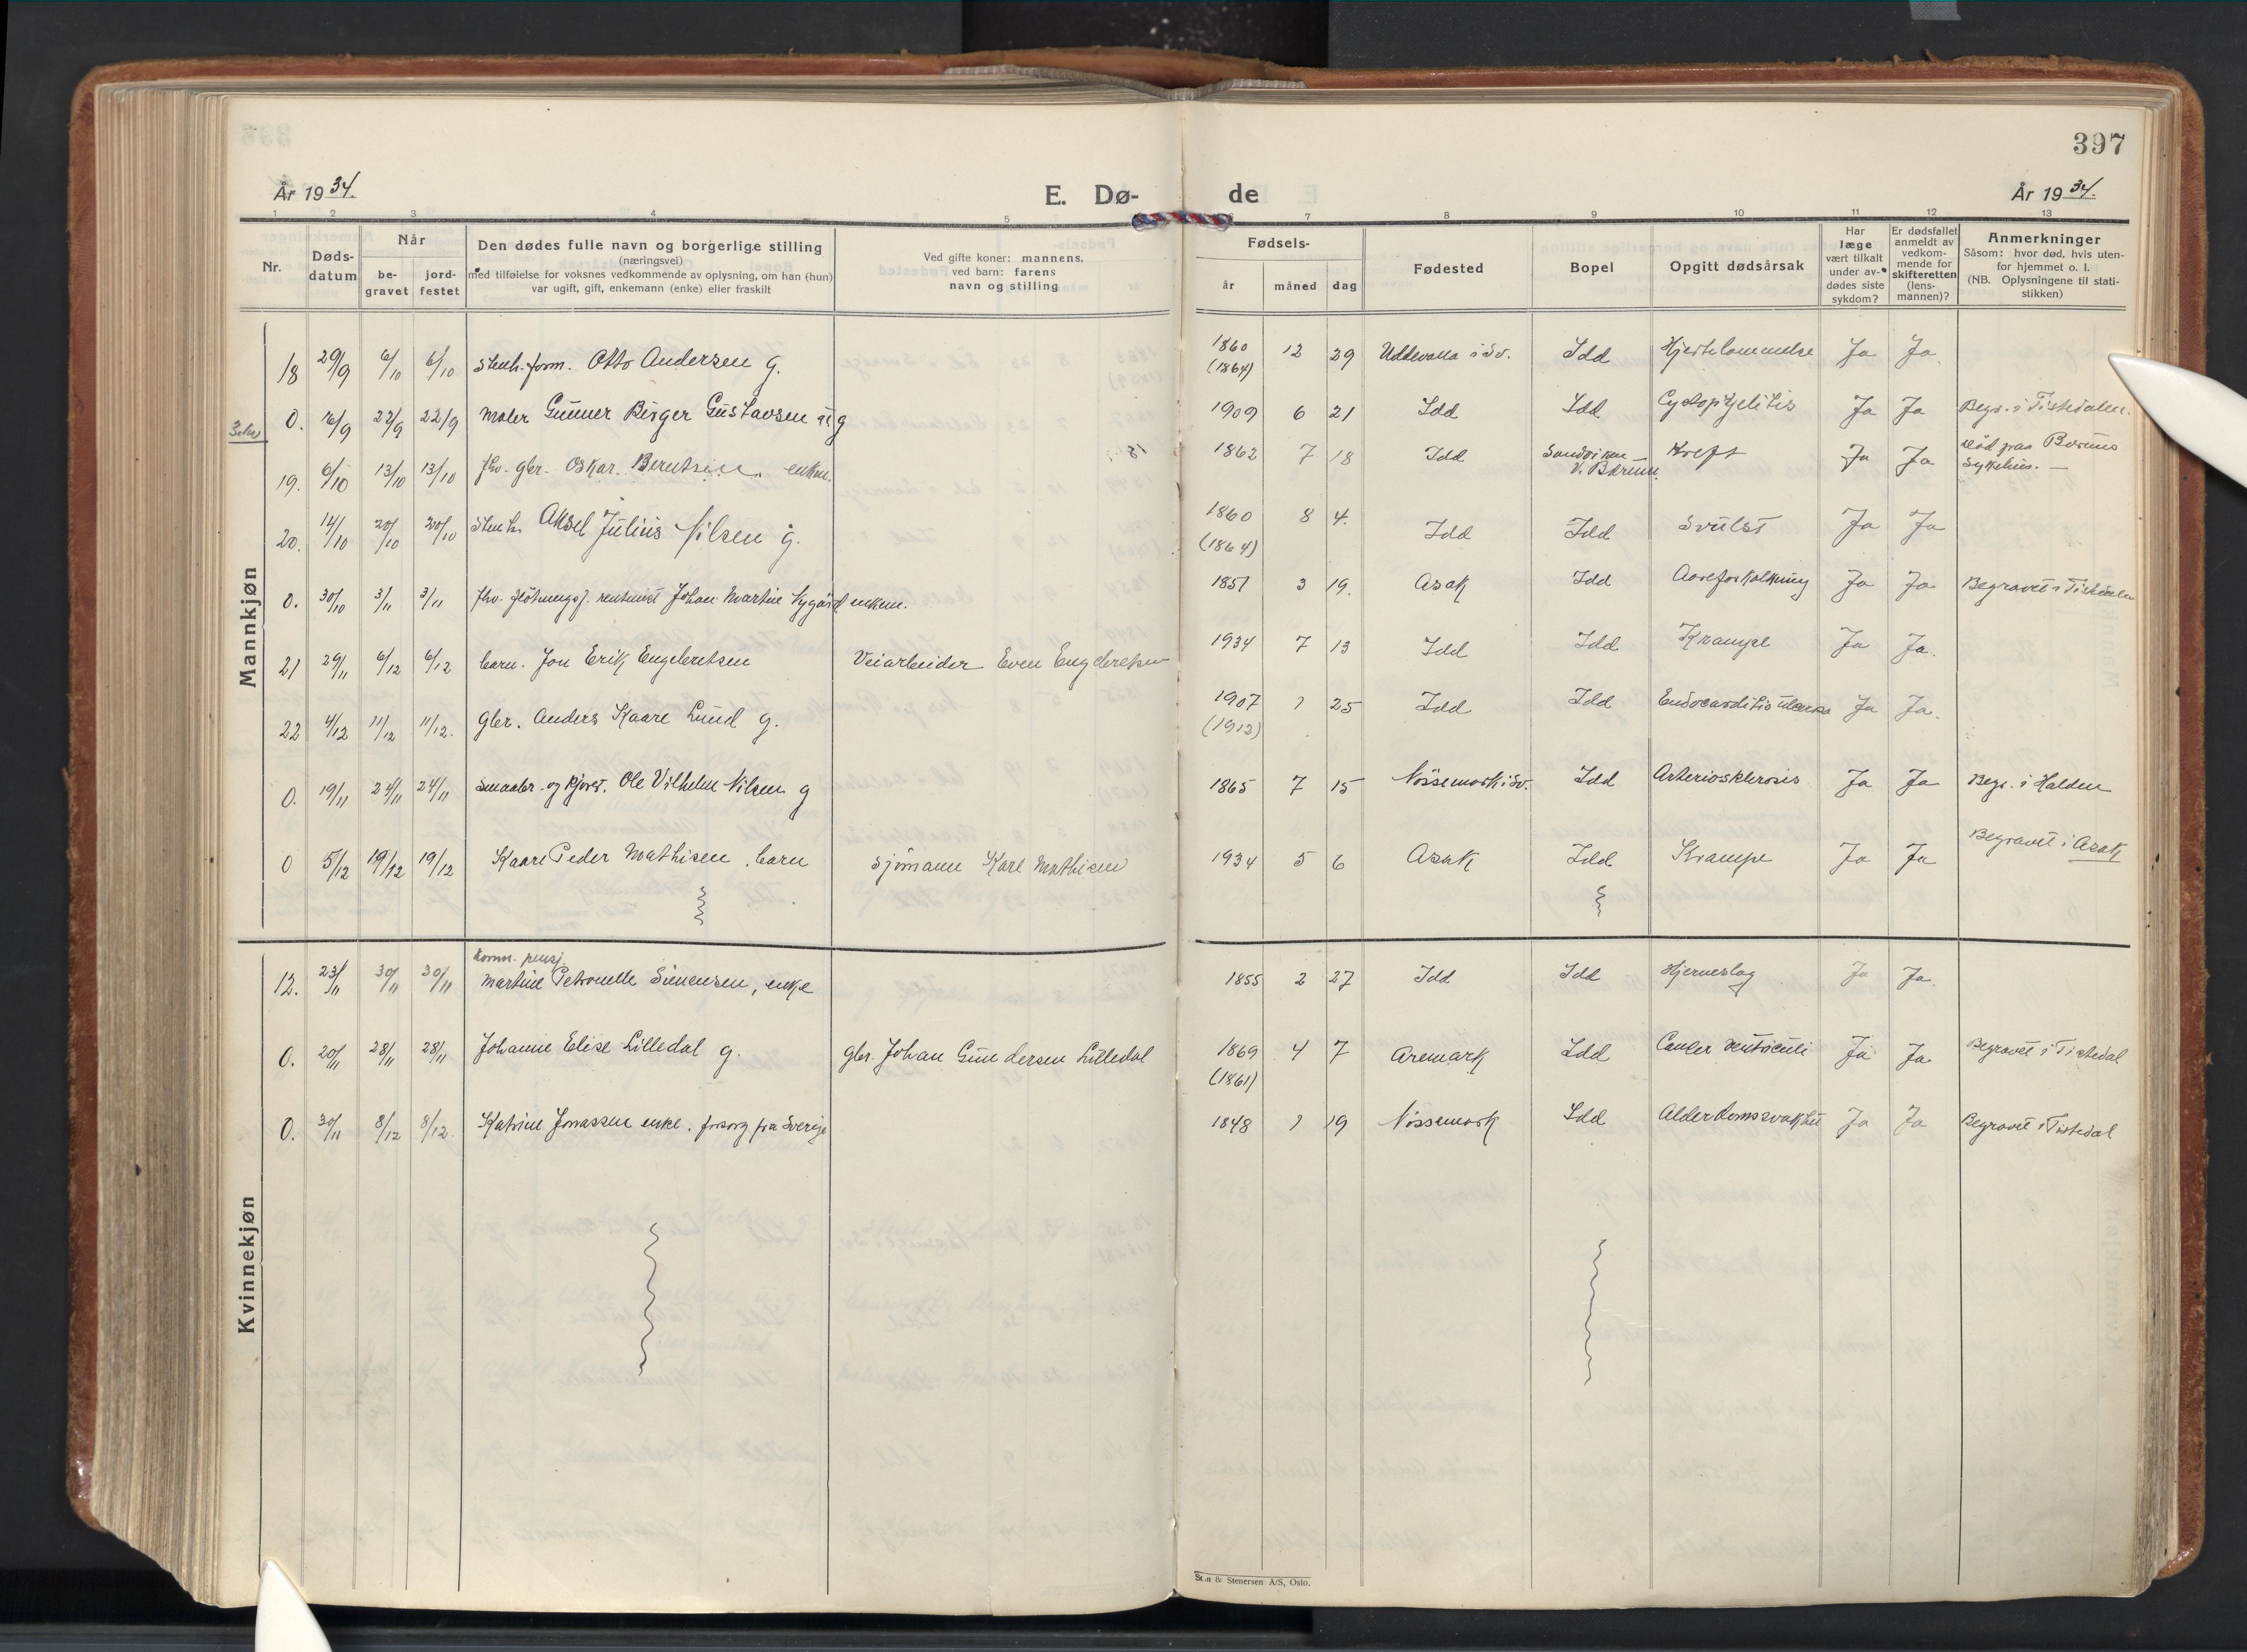 397
År 1934.
E. Dø-
de
År 1934.
1 2 3 4 5 6 7 8 9 10 11 12 13
Nr.
Døds-
datum
Når
be-
gravet
jord-
festet
Den dødes fulle navn og borgerlige stilling
(næringsvei)
med tilføielse for voksnes vedkommende av oplysning, om han (hun)
var ugift, gift, enkemann (enke) eller fraskilt
Ved gifte koner: mannens,
ved barn: farens
navn og stilling
Fødsels-
år
måned
dag
Fødested
Bopel
Opgitt dødsårsak
Har
læge
vært tilkalt
under av-
dødes siste
sykdom?
Er dødsfallet
anmeldt av
vedkom-
mende for
skifteretten
(lens-
mannen)?
Anmerkninger
Såsom: hvor død, hvis uten-
for hjemmet o. l.
(NB. Oplysningene til stati-
stikken)
Mannkjøn
18 29/9 6/10 6/10 stenh. form. Otto Andersen g. 1860 12 29 Uddevalla i Sv. Idd Hjertelammelse Ja Ja.
(1864)
0. 16/9 22/9 22/9 Maler Gunner Birger Gustavsen ug 1909 6 21 Idd Idd Cystopyelitis Ja Ja Begr. i Tistedalen.
19. 6/10 13/10 13/10 fhv. gbr. Oskar Berntsen. enkem. 1862 7 18 Idd Sandviken - Kreft Ja Ja død paa Bærums
V. Bærum. sykehus. —
20. 14/10 20/10 20/10 stenh. Aksel Julius Nilsen g. 1860 8 4. Idd Idd Svulst Ja Ja
(1864)
0. 30/10 3/11 3/11 fhv. fløtningsf. rentenist Johan Martin Nygård enkem. 1851 3 19. Asak Idd Aareforkalkning Ja Ja Begravet i Tistedalen
21 29/11 6/12 6/12 barn. Jon Erik Engebretsen Veiarbeider Even Engebretsen 1934 7 13 Idd Idd Krampe Ja Ja.
22 4/12 11/12 11/12. Gbr. Anders Kaare Lund g. 1907 1 25 Idd Idd Endocarditis ulcerosa Ja Ja.
(1912)
0. 19/11 24/11 24/11 Smaabr. og kjører. Ole Vilhelm Nilsen g 1865 7 15 Nössemark i Sv. Idd Arteriosklerosis Ja Ja Begr. i Halden
0 5/12 19/12 19/12 Kaare Peder Mathisen, barn Sjömann Karl Mathisen 1934 5 6 Asak Idd Krampe Ja Ja Begravet i Asak
Kvinnekjøn
komm. pensj.
12. 23/11 30/11 30/11 Martine Petronelle Simensen, enke 1855 2 27 Idd Idd Hjerneslag Ja Ja.
0. 20/11 28/11 28/11 Johanne Elise Lilledal g. gbr. Johan Gundersen Lilledal 1869 4 7 Aremark Idd Cancer ventriculi Ja Ja. Begravet i Tistedal
(1861)
0. 30/11 8/12 8/12. Katrine Jonassen enke. forsorg fra Sverige 1848 1 19 Nössemark Idd Alderdomssvakhet Ja Ja Begravet i Tistedal
Sten & Stenersen A/S, Oslo.